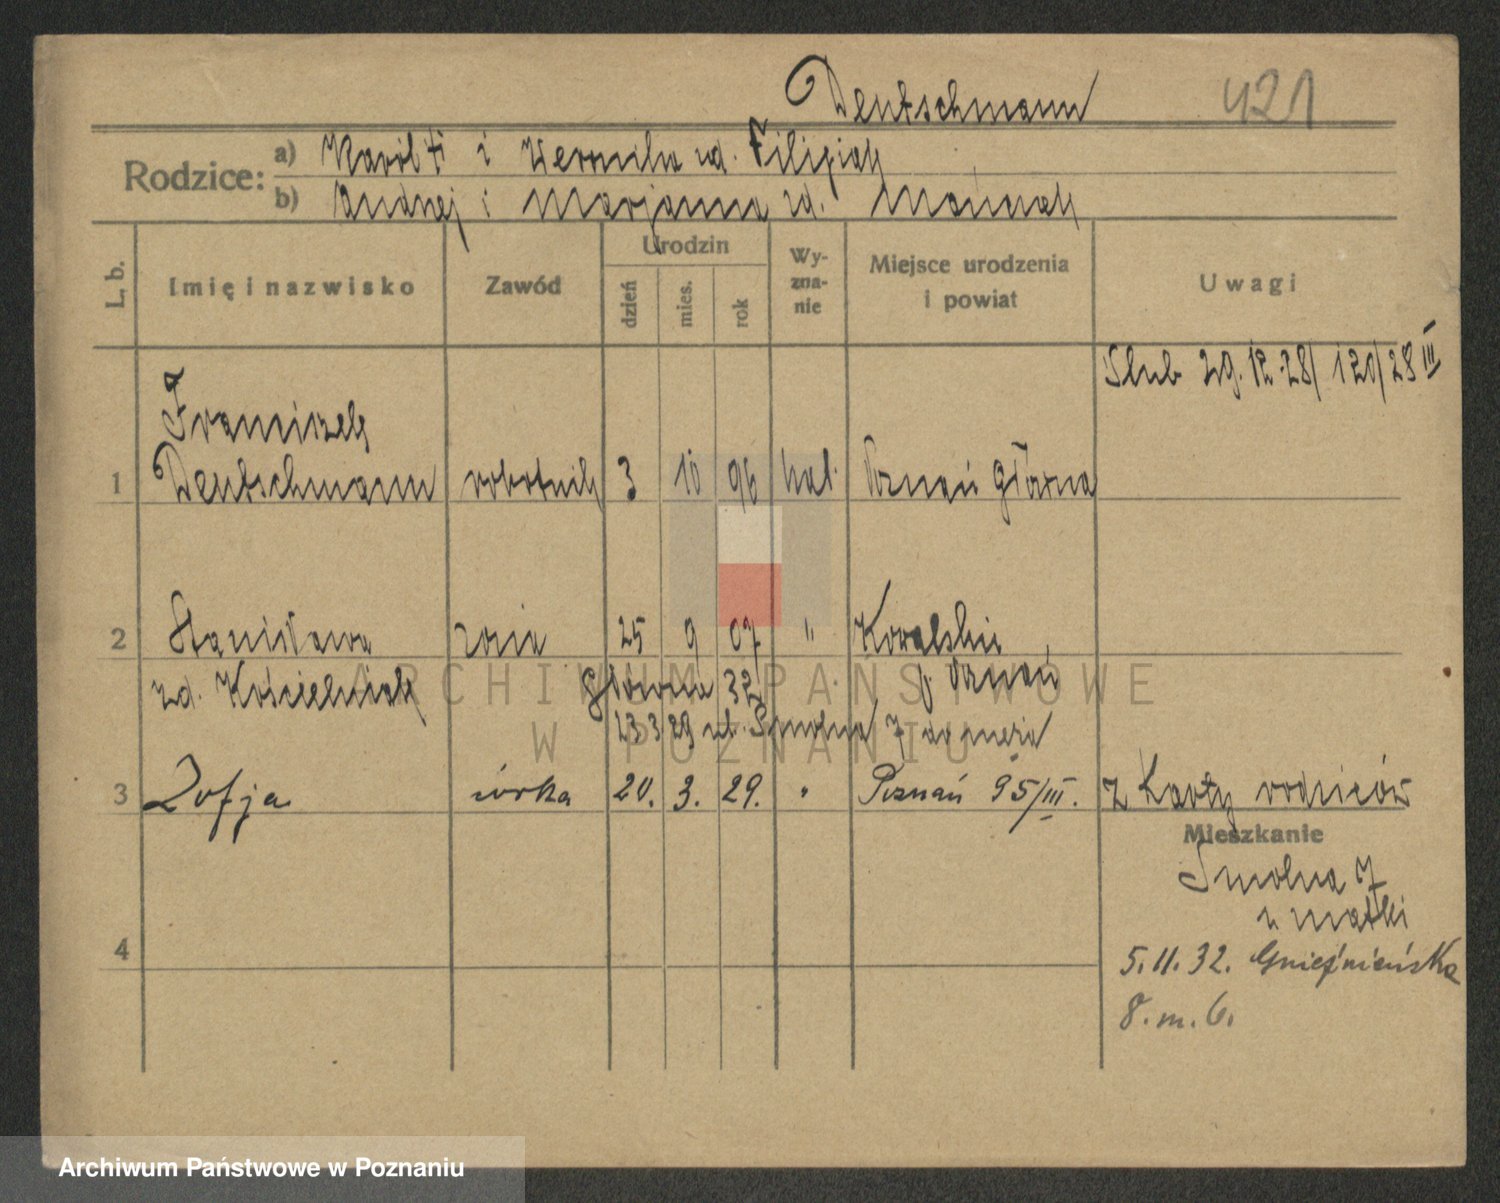 Deutschmann 421
Rodzice: a) Karol † i Hermina zd. Filipiak
b) Andrzej i Marjanna zd.
L. b. Imię i nazwisko Zawód Urodzin dzień mies. rok Wy-zna-nie Miejsce urodzenia i powiat Uwagi
Ślub 29.12.28/ 120/28 III
Franciszek
1 Deutschmann robotnik 3 10 96 kat. Poznań Główna
2 Stanisława żona 25 9 07 " Kowalskie
zd. Kościelniak Główna 32 p. Poznań
23 3 29 ul. Smolna 7
3 Zofja córka 20. 3. 29. " Poznań 95/III. z Karty rodziców
Mieszkanie
Smolna 7
u matki
4
5.11.32. Gnieźnieńska
8. m. 6.
ARCHIWUM PAŃSTWOWE
W POZNANIU
Archiwum Państwowe w Poznaniu